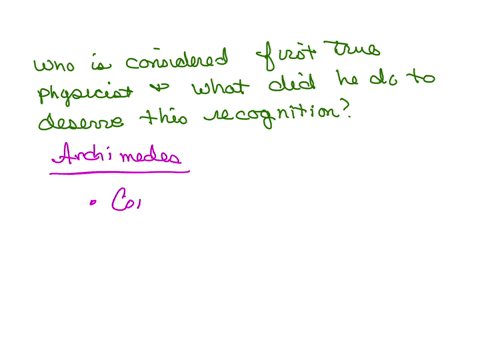 who is considered first true
physicist & what did he do to
deserve this recognition?
Archimedes
• Co